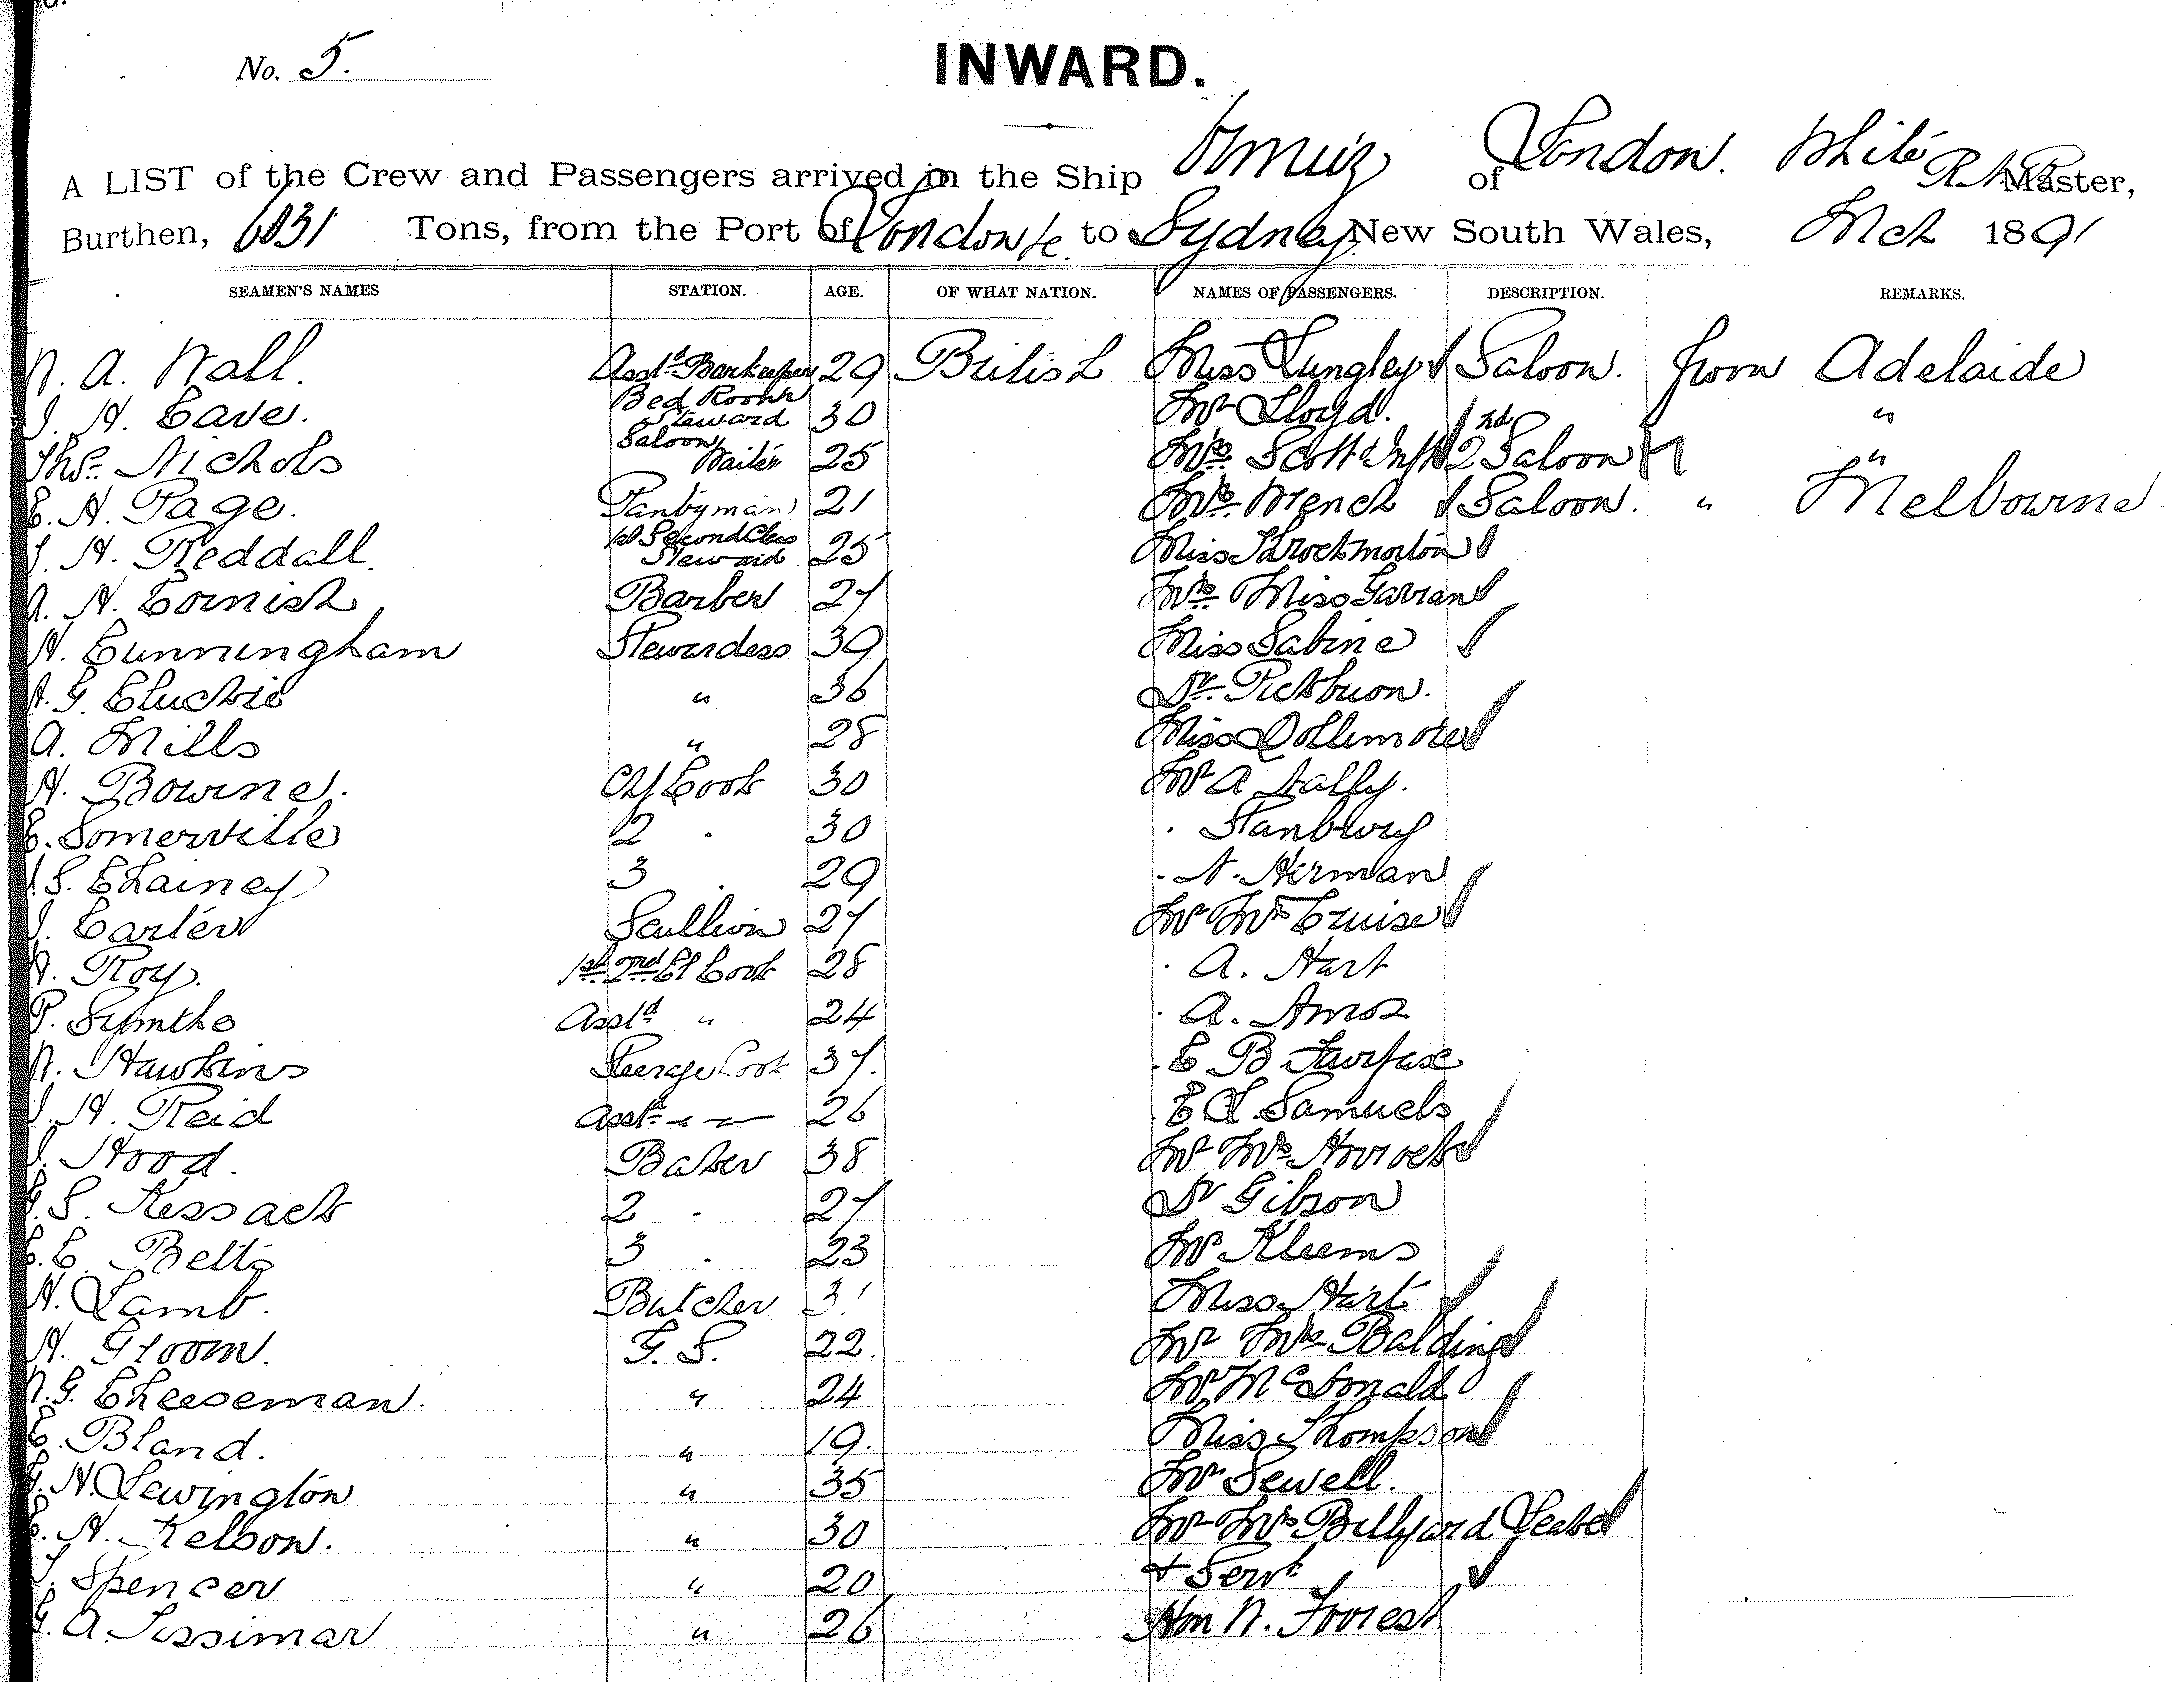 No. 5.
INWARD.
A LIST of the Crew and Passengers arrived in the Ship Ormuz of London. White Master,
Burthen, 6031 Tons, from the Port of London &c. to Sydney New South Wales, Mch 1891
SEAMEN'S NAMES STATION. AGE. OF WHAT NATION. NAMES OF PASSENGERS. DESCRIPTION. REMARKS.
A. Wall. Asst. Barkeeper 29 British Miss Lungley Saloon. from Adelaide
H. Cave. Bed Room Steward 30 Mr Lloyd. "
Thos. Nichols Saloon Waiter 25 Mrs Scott & Inft 2nd Saloon "
E. H. Page. Pantryman 21 Mrs Wrench Saloon. " Melbourne
H. Reddall. Second Class Steward 25 Miss Throckmorton
H. Cornish Barber 27 Mrs Miss Garran
H. Cunningham Stewardess 39 Miss Sabine
G. Cluchie " 36 Dr. Pickburn.
A. Mills " 28 Miss Dollimore
H. Bowine. Chf Cook 30 Mr A Lally.
E. Somerville 2 . 30 . Stanbury
S. Chainey 3 . 29 . N. Herman
J. Carter Scullion 27 Mr Mrs Cruise
Roy. 1st 2nd Cl Cook 28 . A. Hart
P. Symths Asst " 24 . A. Amos
Hawkins Steerage Cook 37. . E B Fairfax
H. Reid Asst. " 26 E L Samuels
J. Hood. Baker 38 Mr Mrs Horrocks
S. Kessack 2 . 27 Dr Gibson
C. Betts 3 . 23 Mr Kleems
H. Lamb. Butcher 31 Miss Hart
H. Groom. G. S. 22. Mr Mrs Balding
G. Cheeseman. " 24 Mr McDonald
E. Bland. " 19. Miss Thompson
H. Lewington " 35 Mr Sewell.
E. H. Kelson. " 30 Mr Mrs Billyard Leabe
Spencer " 20 & Servt
A. Lissimar " 26 Hon N. Forrest